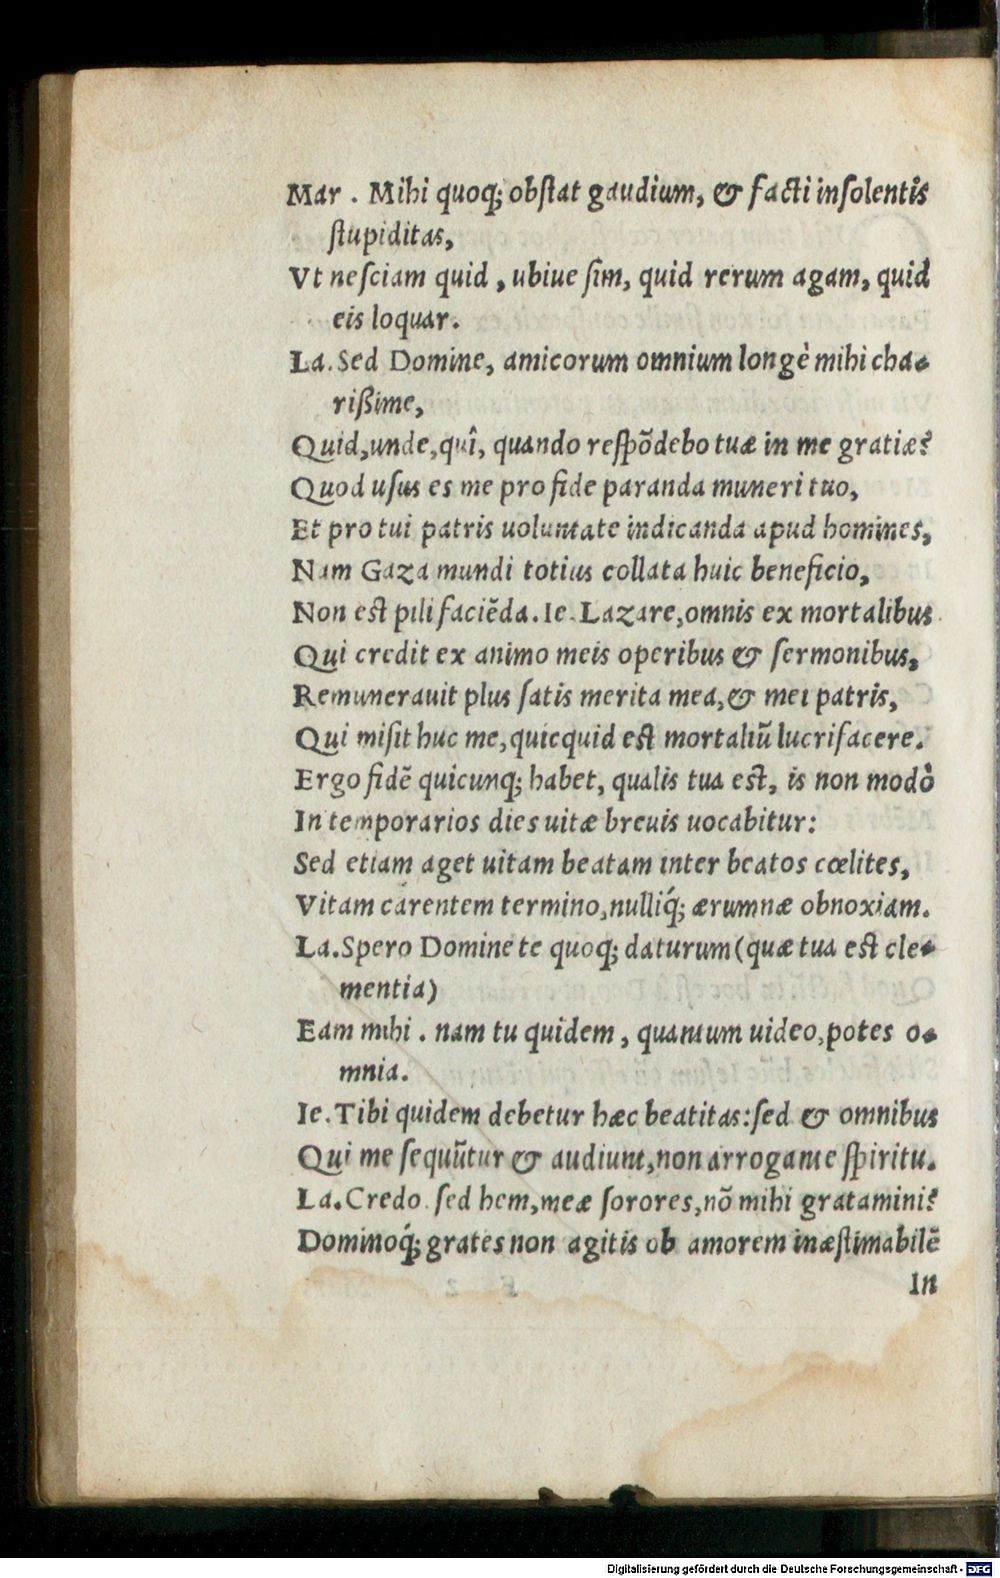 Mar . Mihi quoq; obſtat gaudium, & facti inſolentis
ſtupiditas,
Vt neſciam quid , ubiue ſim, quid rerum agam, quid
eis loquar.
La. Sed Domine, amicorum omnium longè mihi cha-
rißime,
Quid, unde, quî, quando reſpõdebo tuæ in me gratiæ?
Quod uſus es me pro fide paranda muneri tuo,
Et pro tui patris uoluntate indicanda apud homines,
Nam Gaza mundi totius collata huic beneficio,
Non eſt pili faciẽda. Ie. Lazare, omnis ex mortalibus
Qui credit ex animo meis operibus & ſermonibus,
Remunerauit plus ſatis merita mea, & mei patris,
Qui miſit huc me, quicquid eſt mortaliũ lucrifacere.
Ergo fidẽ quicunq; habet, qualis tua eſt, is non modò
In temporarios dies uitæ breuis uocabitur:
Sed etiam aget uitam beatam inter beatos cœlites,
Vitam carentem termino, nulliq́; ærumnæ obnoxiam.
La. Spero Domine te quoq; daturum (quæ tua eſt cle-
mentia)
Eam mihi . nam tu quidem , quantum uideo, potes o-
mnia.
Ie. Tibi quidem debetur hæc beatitas: ſed & omnibus
Qui me ſequũtur & audiunt, non arrogante ſpiritu.
La. Credo. ſed hem, meæ ſorores, nõ mihi gratamini?
Dominoq́; grates non agitis ob amorem inæſtimabilẽ
In
Digitalisierung gefördert durch die Deutsche Forschungsgemeinschaft - DFG